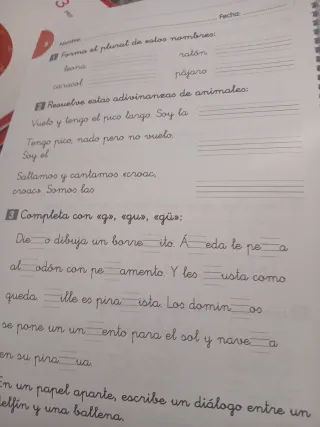 Nombre: Fecha:
1 Forma el plural de estos nombres:
leona ratón
caracol pájaro
2 Resuelve estas adivinanzas de animales:
Vuelo y tengo el pico largo. Soy la
Tengo pico, nado pero no vuelo.
Soy el
Saltamos y cantamos «croac,
croac». Somos las
3 Completa con «g», «gu», «gü»:
Die__o dibuja un borre__ito. Á__eda le pe__a
al__odón con pe__amento. Y les __usta como
queda. __ille es pira__ista. Los domin__os
se pone un un__ento para el sol y nave__a
en su pira__ua.
En un papel aparte, escribe un diálogo entre un
delfín y una ballena.